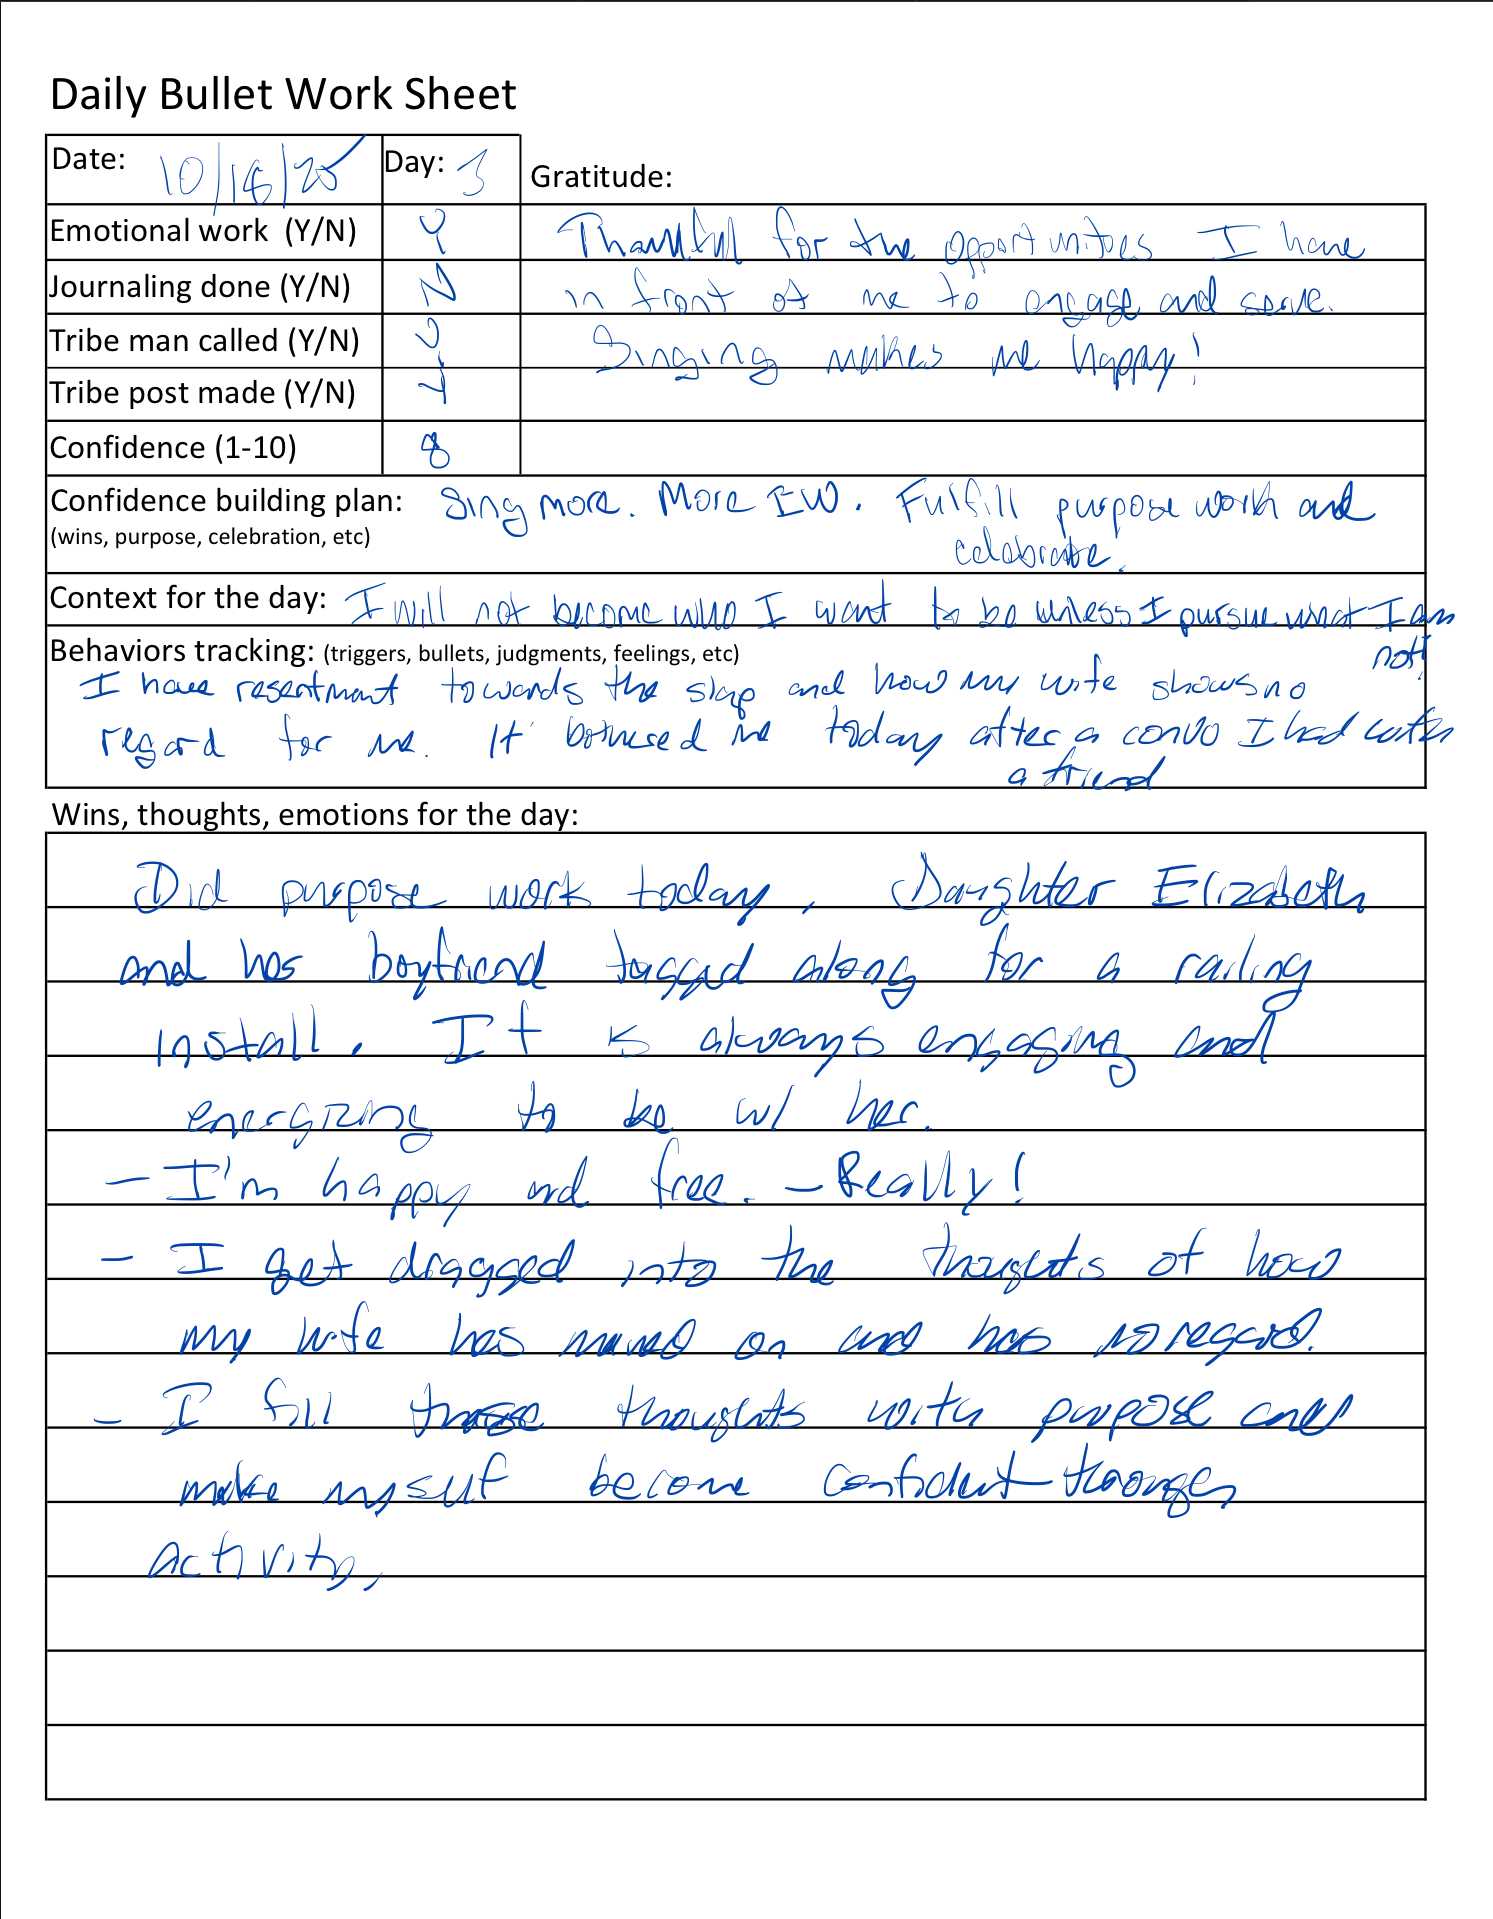 Daily Bullet Work Sheet
Date: 10/18/25 Day: 3 Gratitude:
Emotional work (Y/N) Y Thankful for the opportunities I have
Journaling done (Y/N) N in front of me to engage and serve.
Tribe man called (Y/N) Y Singing makes me happy!
Tribe post made (Y/N) Y
Confidence (1-10) 8
Confidence building plan: Sing more. More EW. Fulfill purpose work and
(wins, purpose, celebration, etc) celebrate.
Context for the day: I will not become who I want to be unless I pursue what I am
not!
Behaviors tracking: (triggers, bullets, judgments, feelings, etc)
I have resentment towards the slap and how my wife shows no
regard for me. It bothered me today after a convo I had with
a friend
Wins, thoughts, emotions for the day:
Did purpose work today. Daughter Elizabeth
and her boyfriend tagged along for a railing
install. It is always engaging and
energizing to be w/ her.
- I'm happy and free. - Really!
- I get dragged into the thoughts of how
my wife has moved on and has no regard.
- I fill those thoughts with purpose and
make myself become confident through
activity.